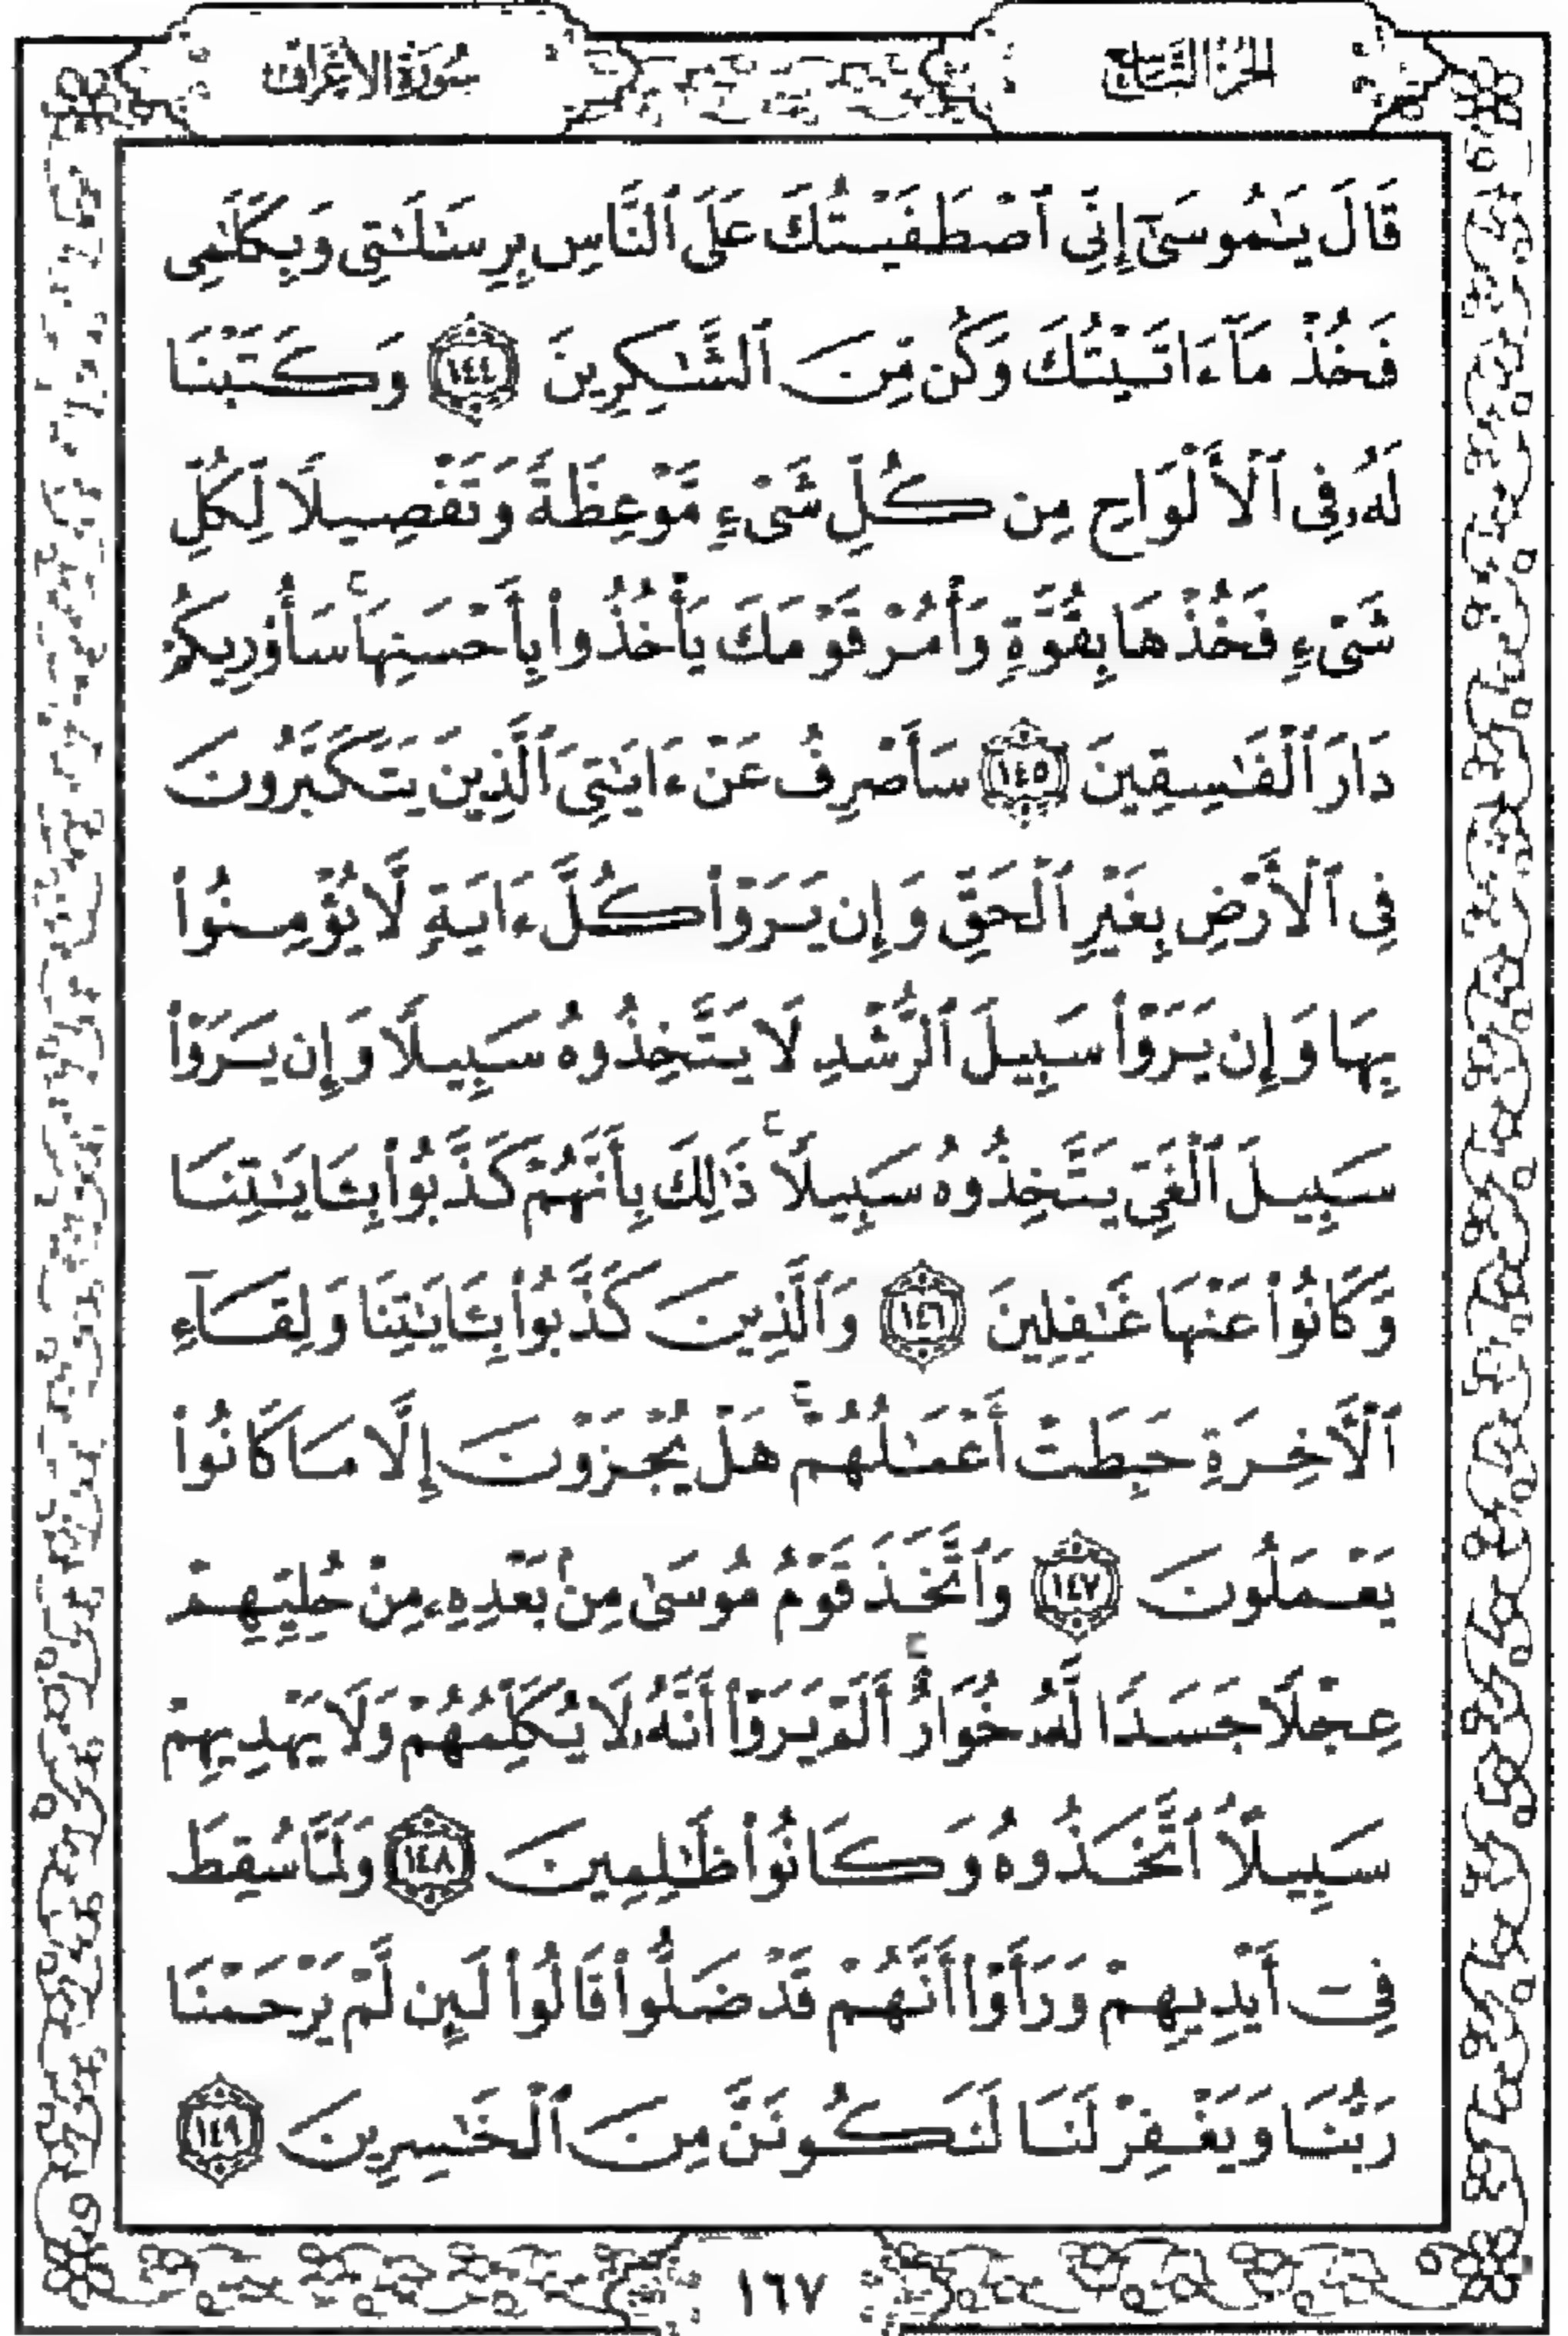 الجُزْءُ التَّاسِعُ
سُورَةُ الأَعْرَافِ
قَالَ يَٰمُوسَىٰٓ إِنِّى ٱصْطَفَيْتُكَ عَلَى ٱلنَّاسِ بِرِسَٰلَٰتِى وَبِكَلَٰمِى
فَخُذْ مَآ ءَاتَيْتُكَ وَكُن مِّنَ ٱلشَّٰكِرِينَ ١٤٤ وَكَتَبْنَا
لَهُۥ فِى ٱلْأَلْوَاحِ مِن كُلِّ شَىْءٍ مَّوْعِظَةً وَتَفْصِيلًا لِّكُلِّ
شَىْءٍ فَخُذْهَا بِقُوَّةٍ وَأْمُرْ قَوْمَكَ يَأْخُذُوا۟ بِأَحْسَنِهَا ۚ سَأُو۟رِيكُمْ
دَارَ ٱلْفَٰسِقِينَ ١٤٥ سَأَصْرِفُ عَنْ ءَايَٰتِىَ ٱلَّذِينَ يَتَكَبَّرُونَ
فِى ٱلْأَرْضِ بِغَيْرِ ٱلْحَقِّ وَإِن يَرَوْا۟ كُلَّ ءَايَةٍ لَّا يُؤْمِنُوا۟
بِهَا وَإِن يَرَوْا۟ سَبِيلَ ٱلرُّشْدِ لَا يَتَّخِذُوهُ سَبِيلًا وَإِن يَرَوْا۟
سَبِيلَ ٱلْغَىِّ يَتَّخِذُوهُ سَبِيلًا ۚ ذَٰلِكَ بِأَنَّهُمْ كَذَّبُوا۟ بِـَٔايَٰتِنَا
وَكَانُوا۟ عَنْهَا غَٰفِلِينَ ١٤٦ وَٱلَّذِينَ كَذَّبُوا۟ بِـَٔايَٰتِنَا وَلِقَآءِ
ٱلْءَاخِرَةِ حَبِطَتْ أَعْمَٰلُهُمْ ۚ هَلْ يُجْزَوْنَ إِلَّا مَا كَانُوا۟
يَعْمَلُونَ ١٤٧ وَٱتَّخَذَ قَوْمُ مُوسَىٰ مِنۢ بَعْدِهِۦ مِنْ حُلِيِّهِمْ
عِجْلًا جَسَدًا لَّهُۥ خُوَارٌ ۚ أَلَمْ يَرَوْا۟ أَنَّهُۥ لَا يُكَلِّمُهُمْ وَلَا يَهْدِيهِمْ
سَبِيلًا ٱتَّخَذُوهُ وَكَانُوا۟ ظَٰلِمِينَ ١٤٨ وَلَمَّا سُقِطَ
فِىٓ أَيْدِيهِمْ وَرَأَوْا۟ أَنَّهُمْ قَدْ ضَلُّوا۟ قَالُوا۟ لَئِن لَّمْ يَرْحَمْنَا
رَبُّنَا وَيَغْفِرْ لَنَا لَنَكُونَنَّ مِنَ ٱلْخَٰسِرِينَ ١٤٩
١٦٧